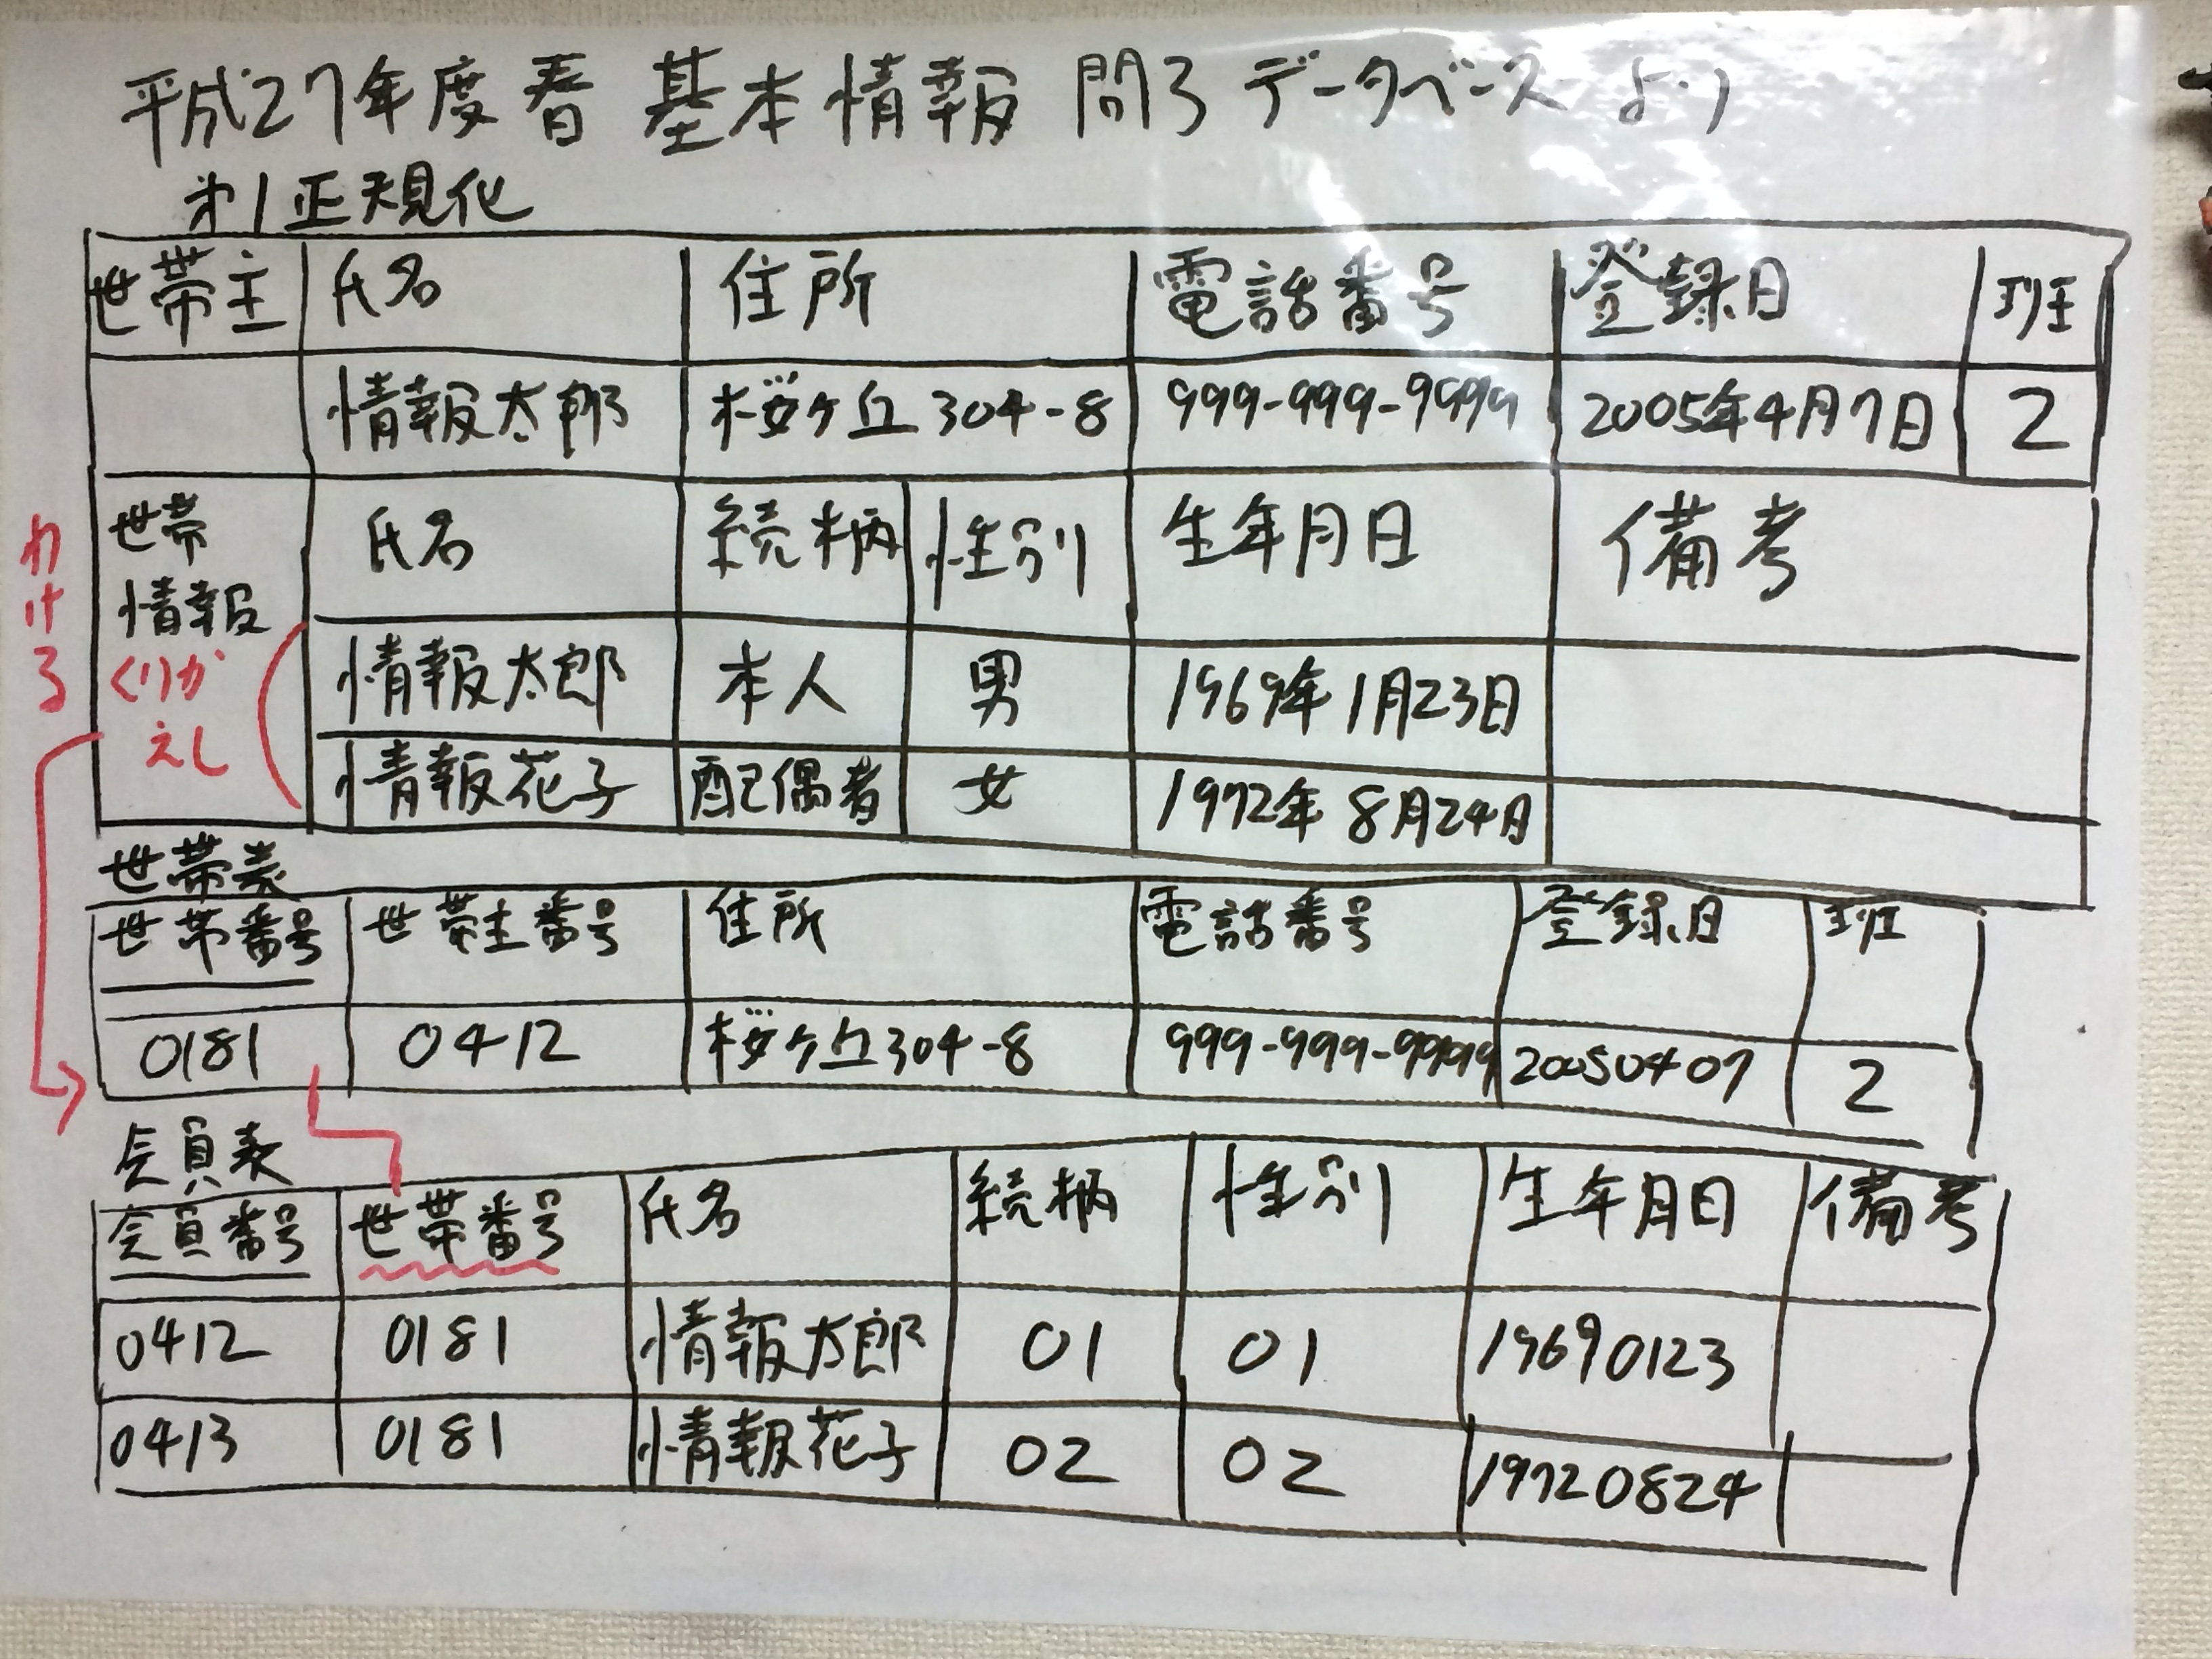 平成27年度春 基本情報 問3 データベース より
第1正規化
世帯主 氏名 住所 電話番号 登録日 班
情報太郎 桜ヶ丘304-8 999-999-9999 2005年4月7日 2
世帯情報 氏名 続柄 性別 生年月日 備考
わける
くりかえし
情報太郎 本人 男 1969年1月23日
情報花子 配偶者 女 1972年8月24日
世帯表
世帯番号 世帯主番号 住所 電話番号 登録日 班
0181 0412 桜ヶ丘304-8 999-999-9999 20050407 2
会員表
会員番号 世帯番号 氏名 続柄 性別 生年月日 備考
0412 0181 情報太郎 01 01 19690123
0413 0181 情報花子 02 02 19720824